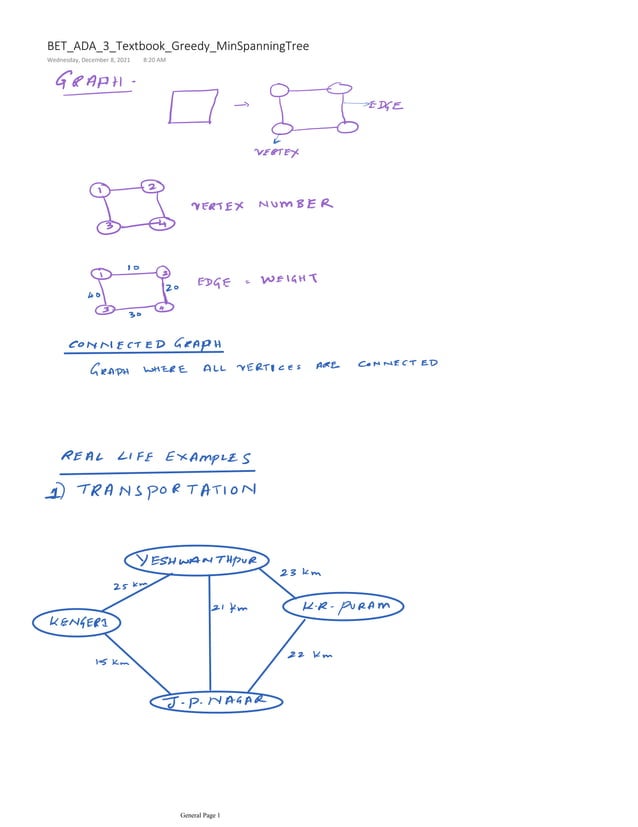 BET_ADA_3_Textbook_Greedy_MinSpanningTree
Wednesday, December 8, 2021 8:20 AM
GRAPH -
EDGE
VERTEX
1 2
VERTEX NUMBER
3 4
10
1 2
EDGE = WEIGHT
40 20
3 4
30
CONNECTED GRAPH
GRAPH WHERE ALL VERTICES ARE CONNECTED
REAL LIFE EXAMPLES
1) TRANSPORTATION
YESHWANTHPUR
25 km 23 km
21 km K.R. PURAM
KENGERI
15 km 22 km
J.P. NAGAR
General Page 1